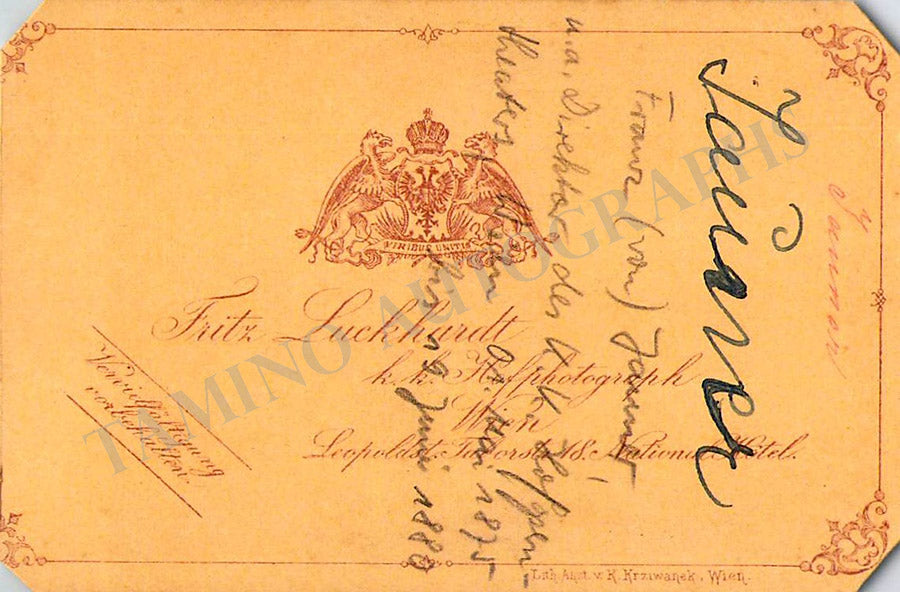 VIRIBUS UNITIS
Fritz Luckhardt
k. k. Hofphotograph
Wien
Leopoldst. Taborstr. 18. National Hôtel.
Vervielfältigung
vorbehalten.
Lith. Anst. v. K. Krziwanek, Wien.
Jauner
Franz (von) Jauner
u. a. Direktor des K. K. Hofopern
theaters Wien 1. Mai 1875
bis 19 Juni 1880
TAMINO AUTOGRAPHS